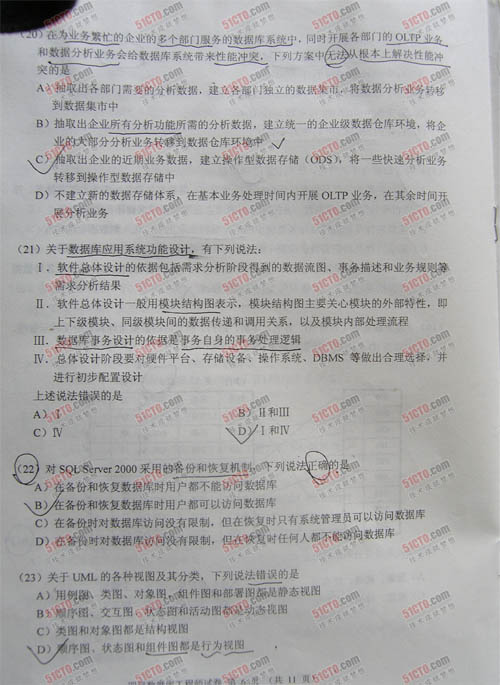 (20) 在为业务繁忙的企业的多个部门服务的数据库系统中，同时开展各部门的 OLTP 业务
和数据分析业务会给数据库系统带来性能冲突，下列方案中无法从根本上解决性能冲
突的是
A）抽取出各部门需要的分析数据，建立各部门独立的数据集市，将数据分析业务转移
到数据集市中
B）抽取出企业所有分析功能所需的分析数据，建立统一的企业级数据仓库环境，将企
业的大部分分析业务转移到数据仓库环境中
C）抽取出企业的近期业务数据，建立操作型数据存储（ODS），将一些快速分析业务
转移到操作型数据存储中
D）不建立新的数据存储体系，在基本业务处理时间内开展 OLTP 业务，在其余时间开
展分析业务
(21) 关于数据库应用系统功能设计，有下列说法：
Ⅰ．软件总体设计的依据包括需求分析阶段得到的数据流图、事务描述和业务规则等
需求分析结果
Ⅱ．软件总体设计一般用模块结构图表示，模块结构图主要关心模块的外部特性，即
上下级模块、同级模块间的数据传递和调用关系，以及模块内部处理流程
Ⅲ．数据库事务设计的依据是事务自身的事务处理逻辑
Ⅳ．总体设计阶段要对硬件平台、存储设备、操作系统、DBMS 等做出合理选择，并
进行初步配置设计
上述说法错误的是
A）Ⅰ B）Ⅱ和Ⅲ
C）Ⅳ D）Ⅰ和Ⅳ
(22) 对 SQL Server 2000 采用的备份和恢复机制，下列说法正确的是
A）在备份和恢复数据库时用户都不能访问数据库
B）在备份和恢复数据库时用户都可以访问数据库
C）在备份时对数据库访问没有限制，但在恢复时只有系统管理员可以访问数据库
D）在备份时对数据库访问没有限制，但在恢复时任何人都不能访问数据库
(23) 关于 UML 的各种视图及其分类，下列说法错误的是
A）用例图、类图、对象图，组件图和部署图都是静态视图
B）顺序图、交互图、状态图和活动图都是动态视图
C）类图和对象图都是结构视图
D）顺序图，状态图和组件图都是行为视图
四级数据库工程师试卷 第 6 页 （共 11 页）
51CTO.com
技术成就梦想